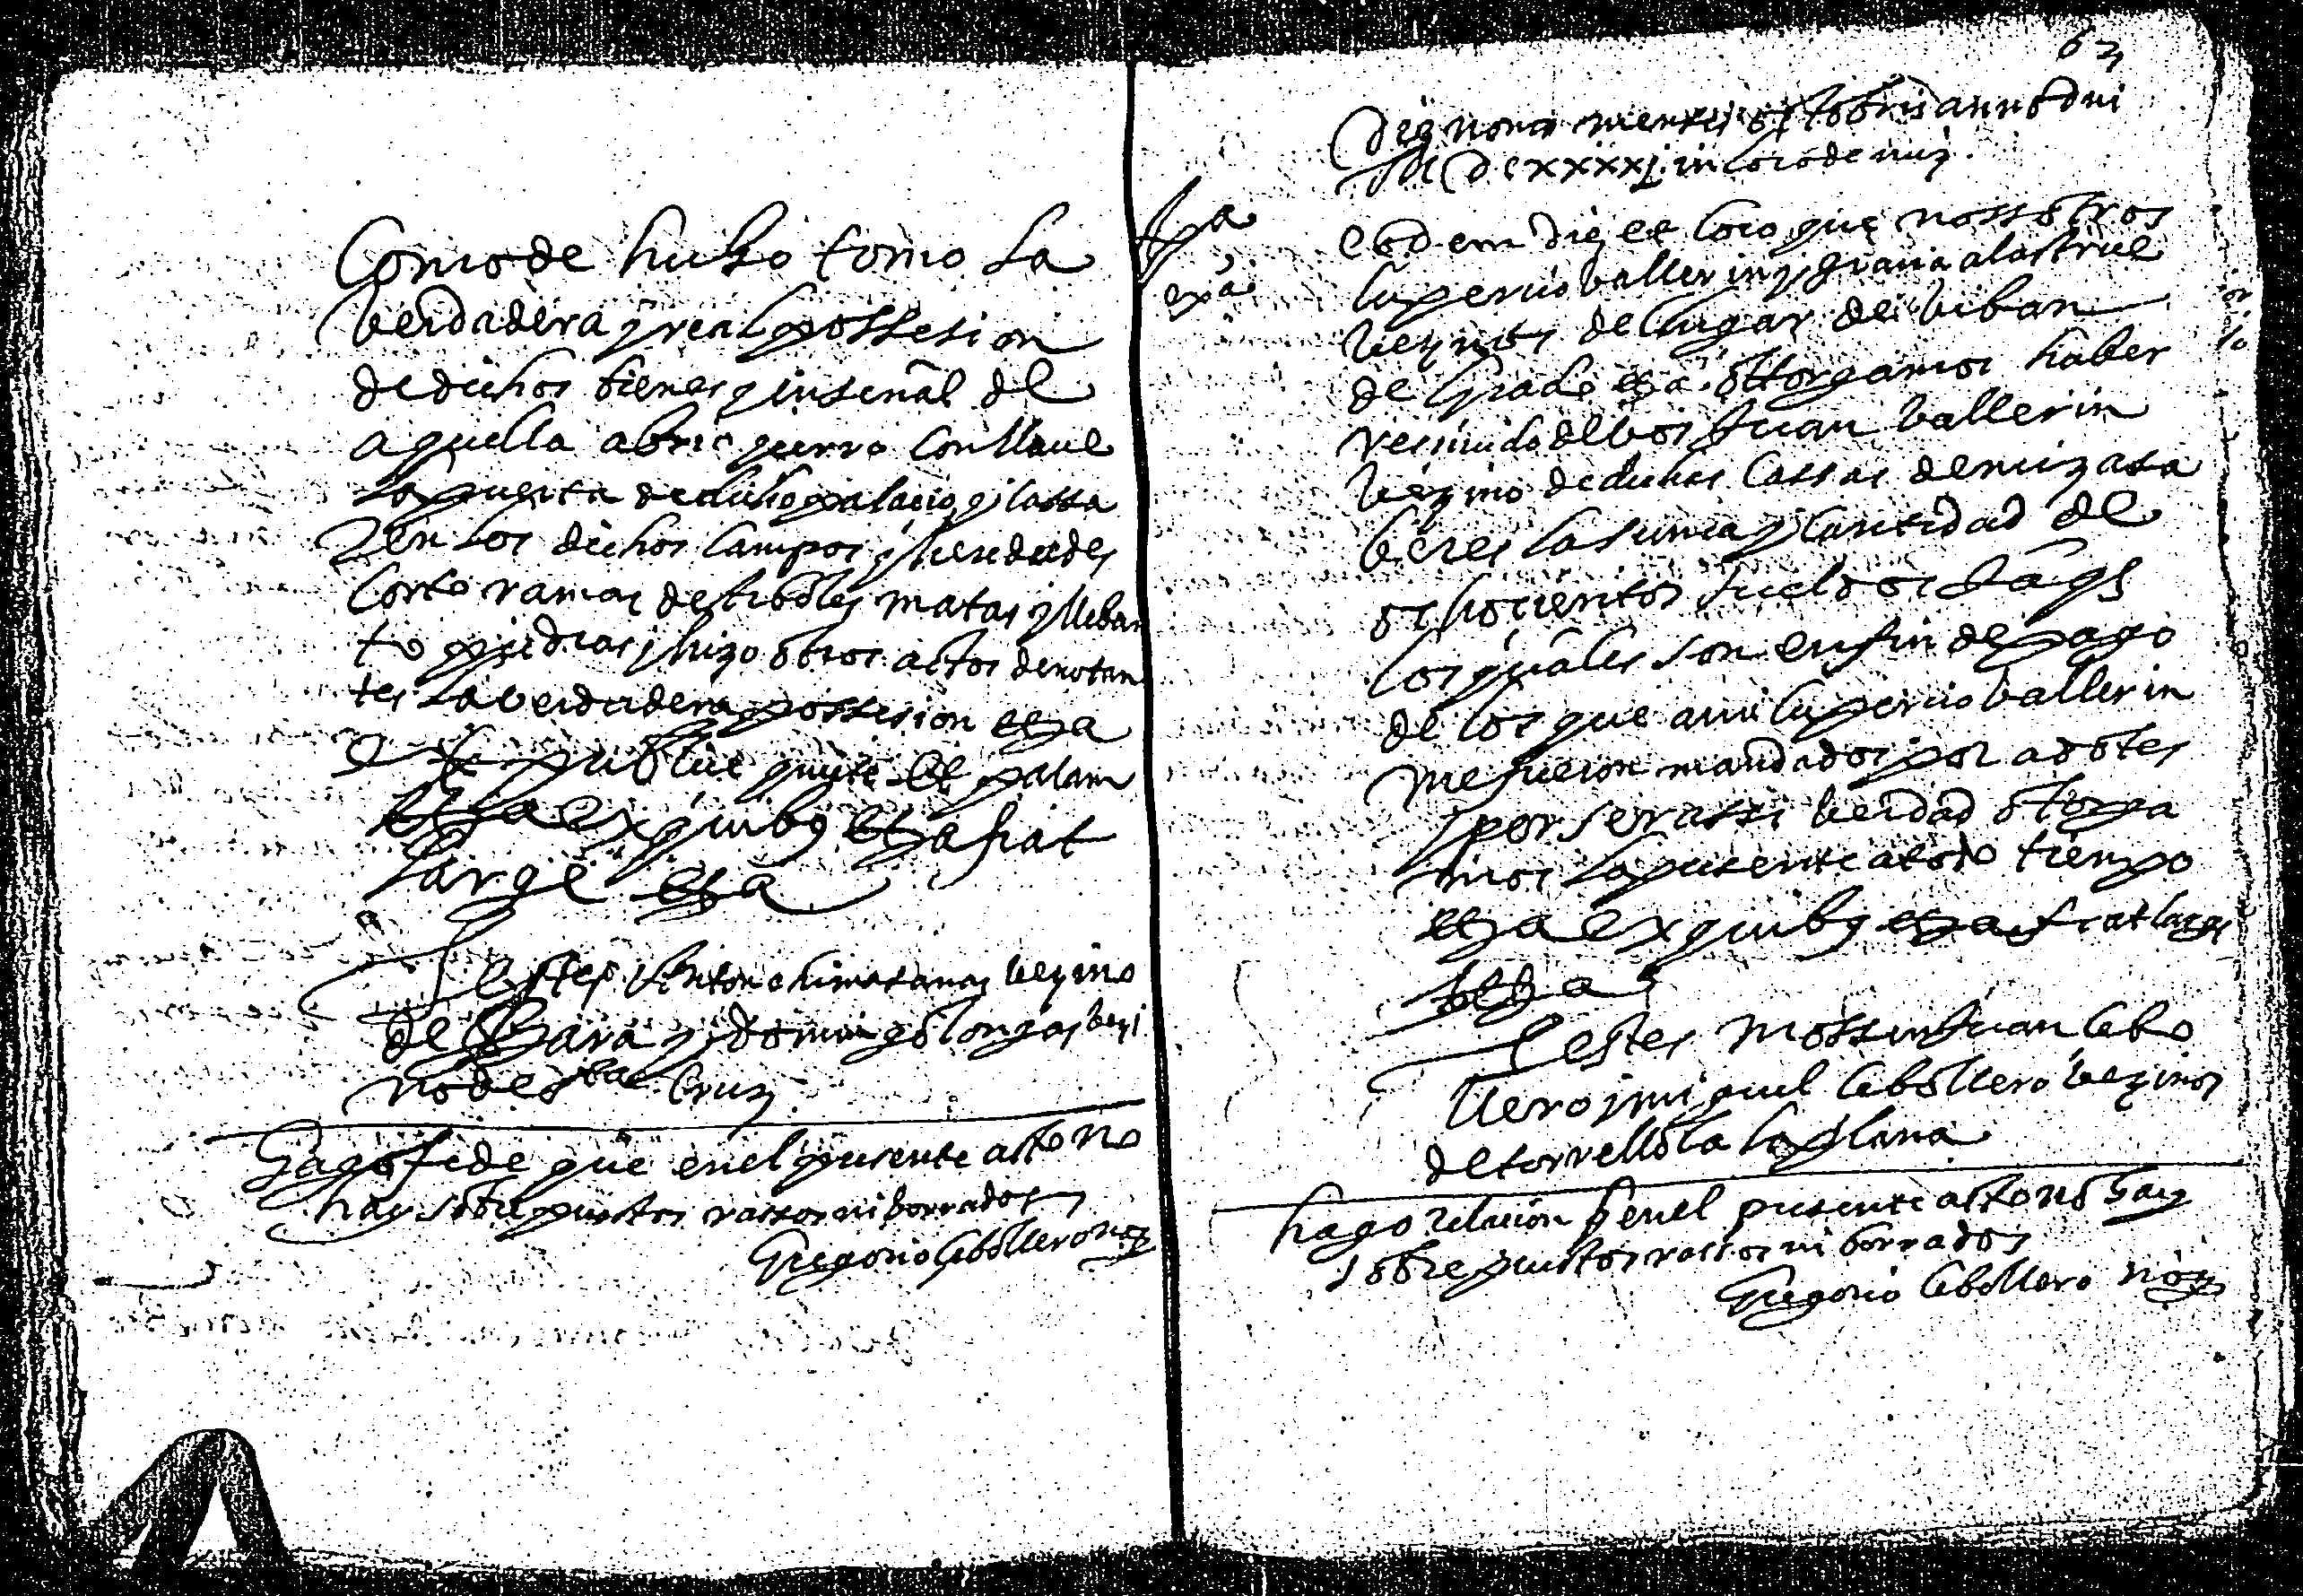 Como de hubo tomo la
verdadera y real possesion
de dichos bienes y en señal de
aquella abrio y cerro con llaue
la puerta de dicho palacio y cassa
y en los dichos campos y heredades
corto ramas de arboles matas y lleban
to piedras y hizo otros actos denotan
tes la verdadera possesion etza
publice quiete et palam
etza ex quibus etza fiat
large etza
Testes Anton vezino
de Bara y domingo vezi
no de Cruz
Hago fe de que en el presente acto no
hay sobrepuestos rassos ni borrados
Gregorio Cebollero not
62
Die nona mensis octobris anno dni
M dcxxxxj in loco de
Apa
expa
eodem die et loco que nossotros
lupercio ballerin y gracia alastrue
vezinos del lugar de biban
de grado etza ottorgamos haber
recivido de bos Juan ballerin
vezino de dichas cassas de
beres la suma y cantidad de
ochocientos sueldos Jaqs
los quales son en fin de pago
de los que a mi lupercio ballerin
me fueron mandados por adotes
y por ser assi berdad otorga
mos la presente a todo tiempo
etza ex quibus etza fiat large
etza
Testes mossen Juan Cebo
llero y miguel Cebollero vezinos
de torrellola la plana
hago relacion q en el presente acto no hay
sobrepuestos rassos ni borrados
Gregorio Cebollero not